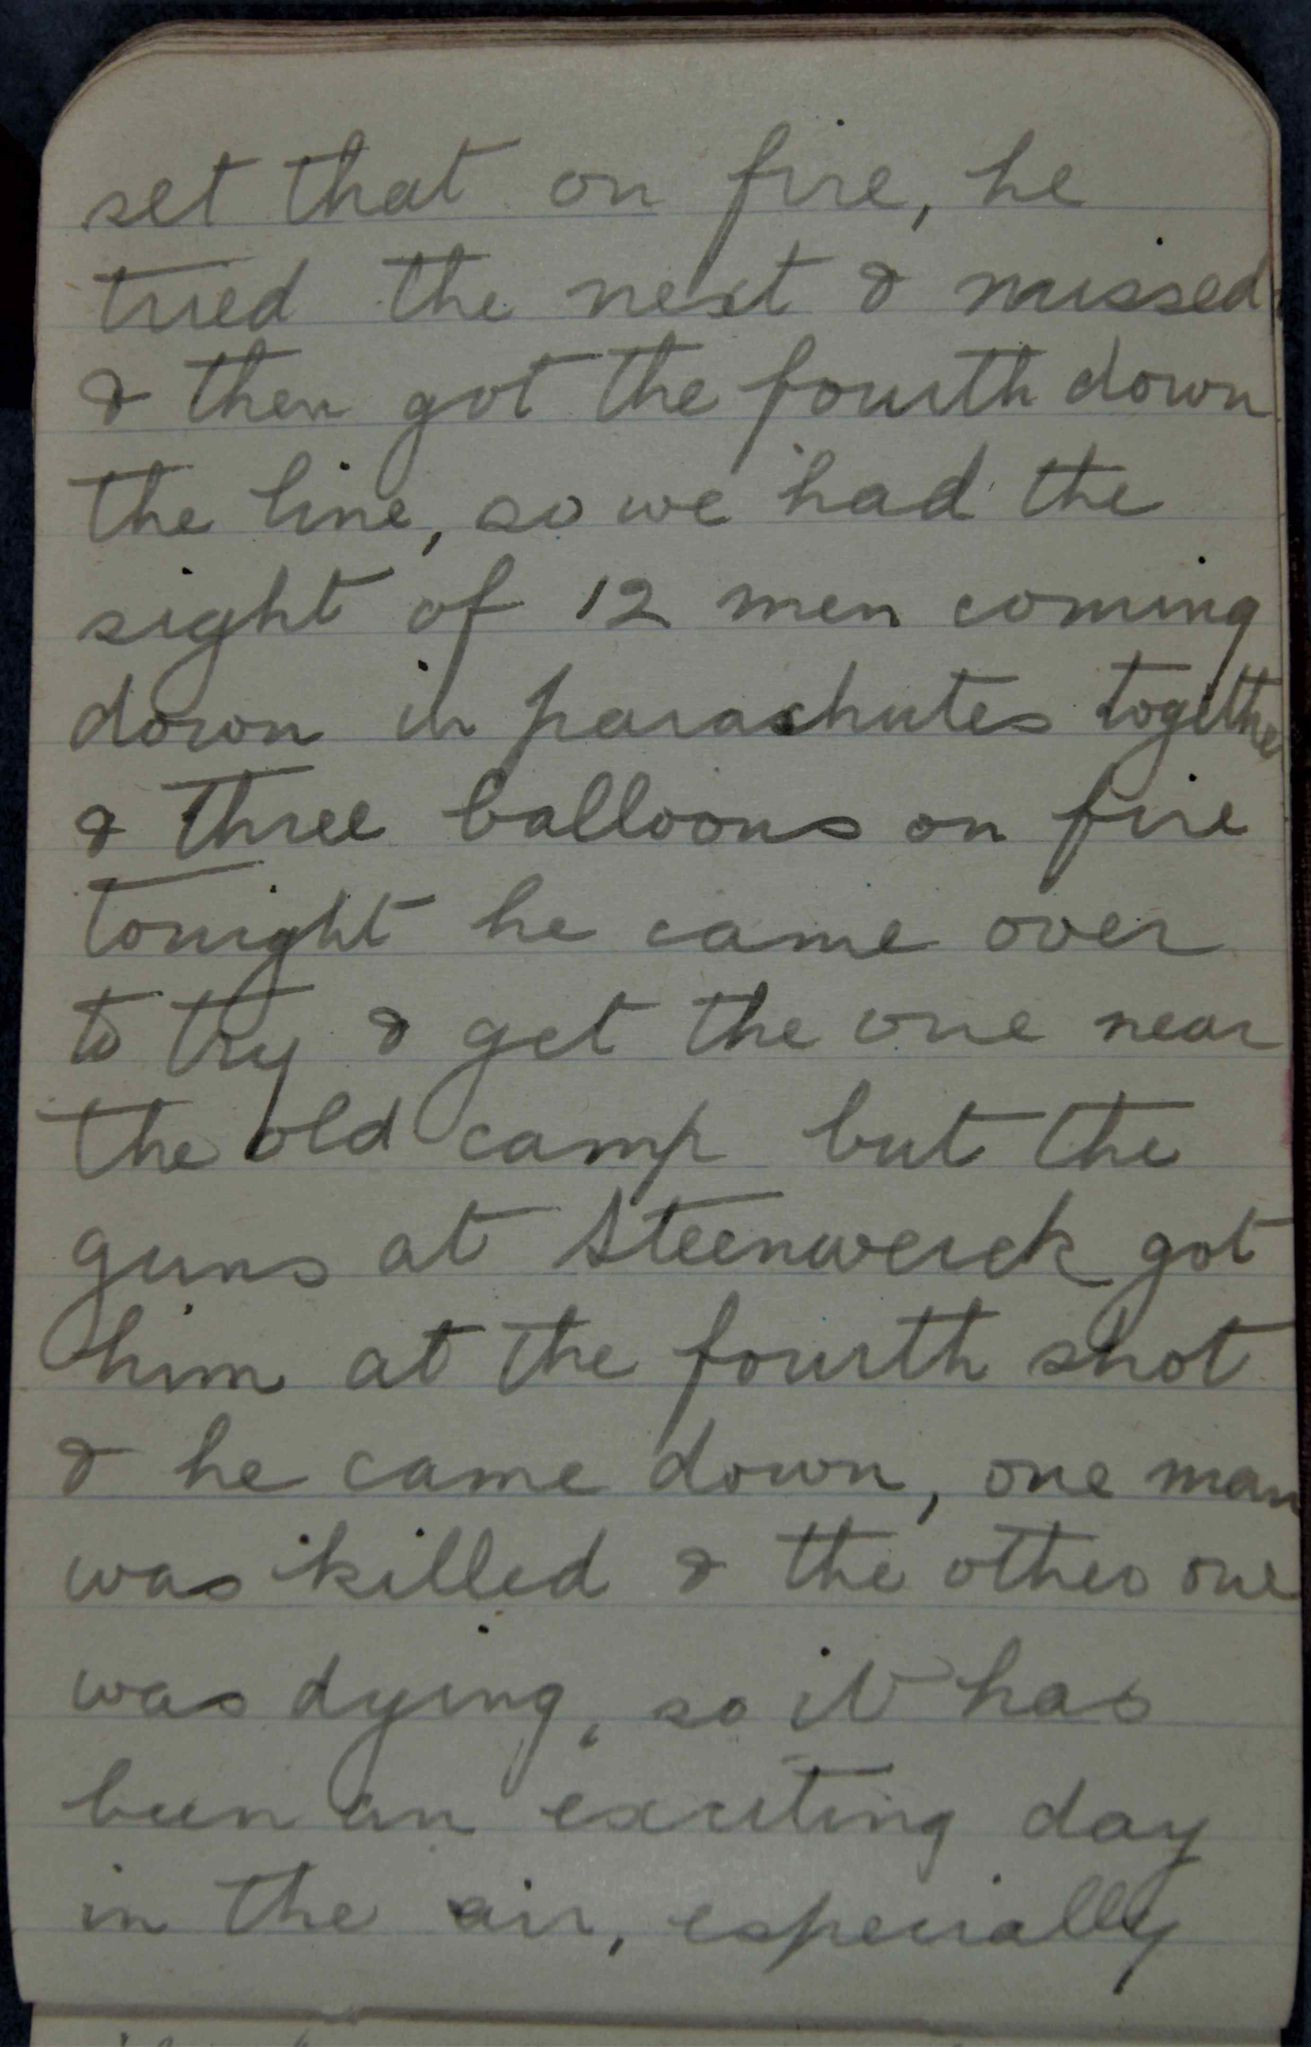 set that on fire, he
tried the next & missed
& then got the fourth down
the line, so we had the
sight of 12 men coming
down in parachutes togethe
& three balloons on fire
tonight he came over
to try & get the one near
the old camp but the
guns at Steenwerck got
him at the fourth shot
& he came down, one man
was killed & the other one
was dying, so it has
been an exciting day
in the air, especially